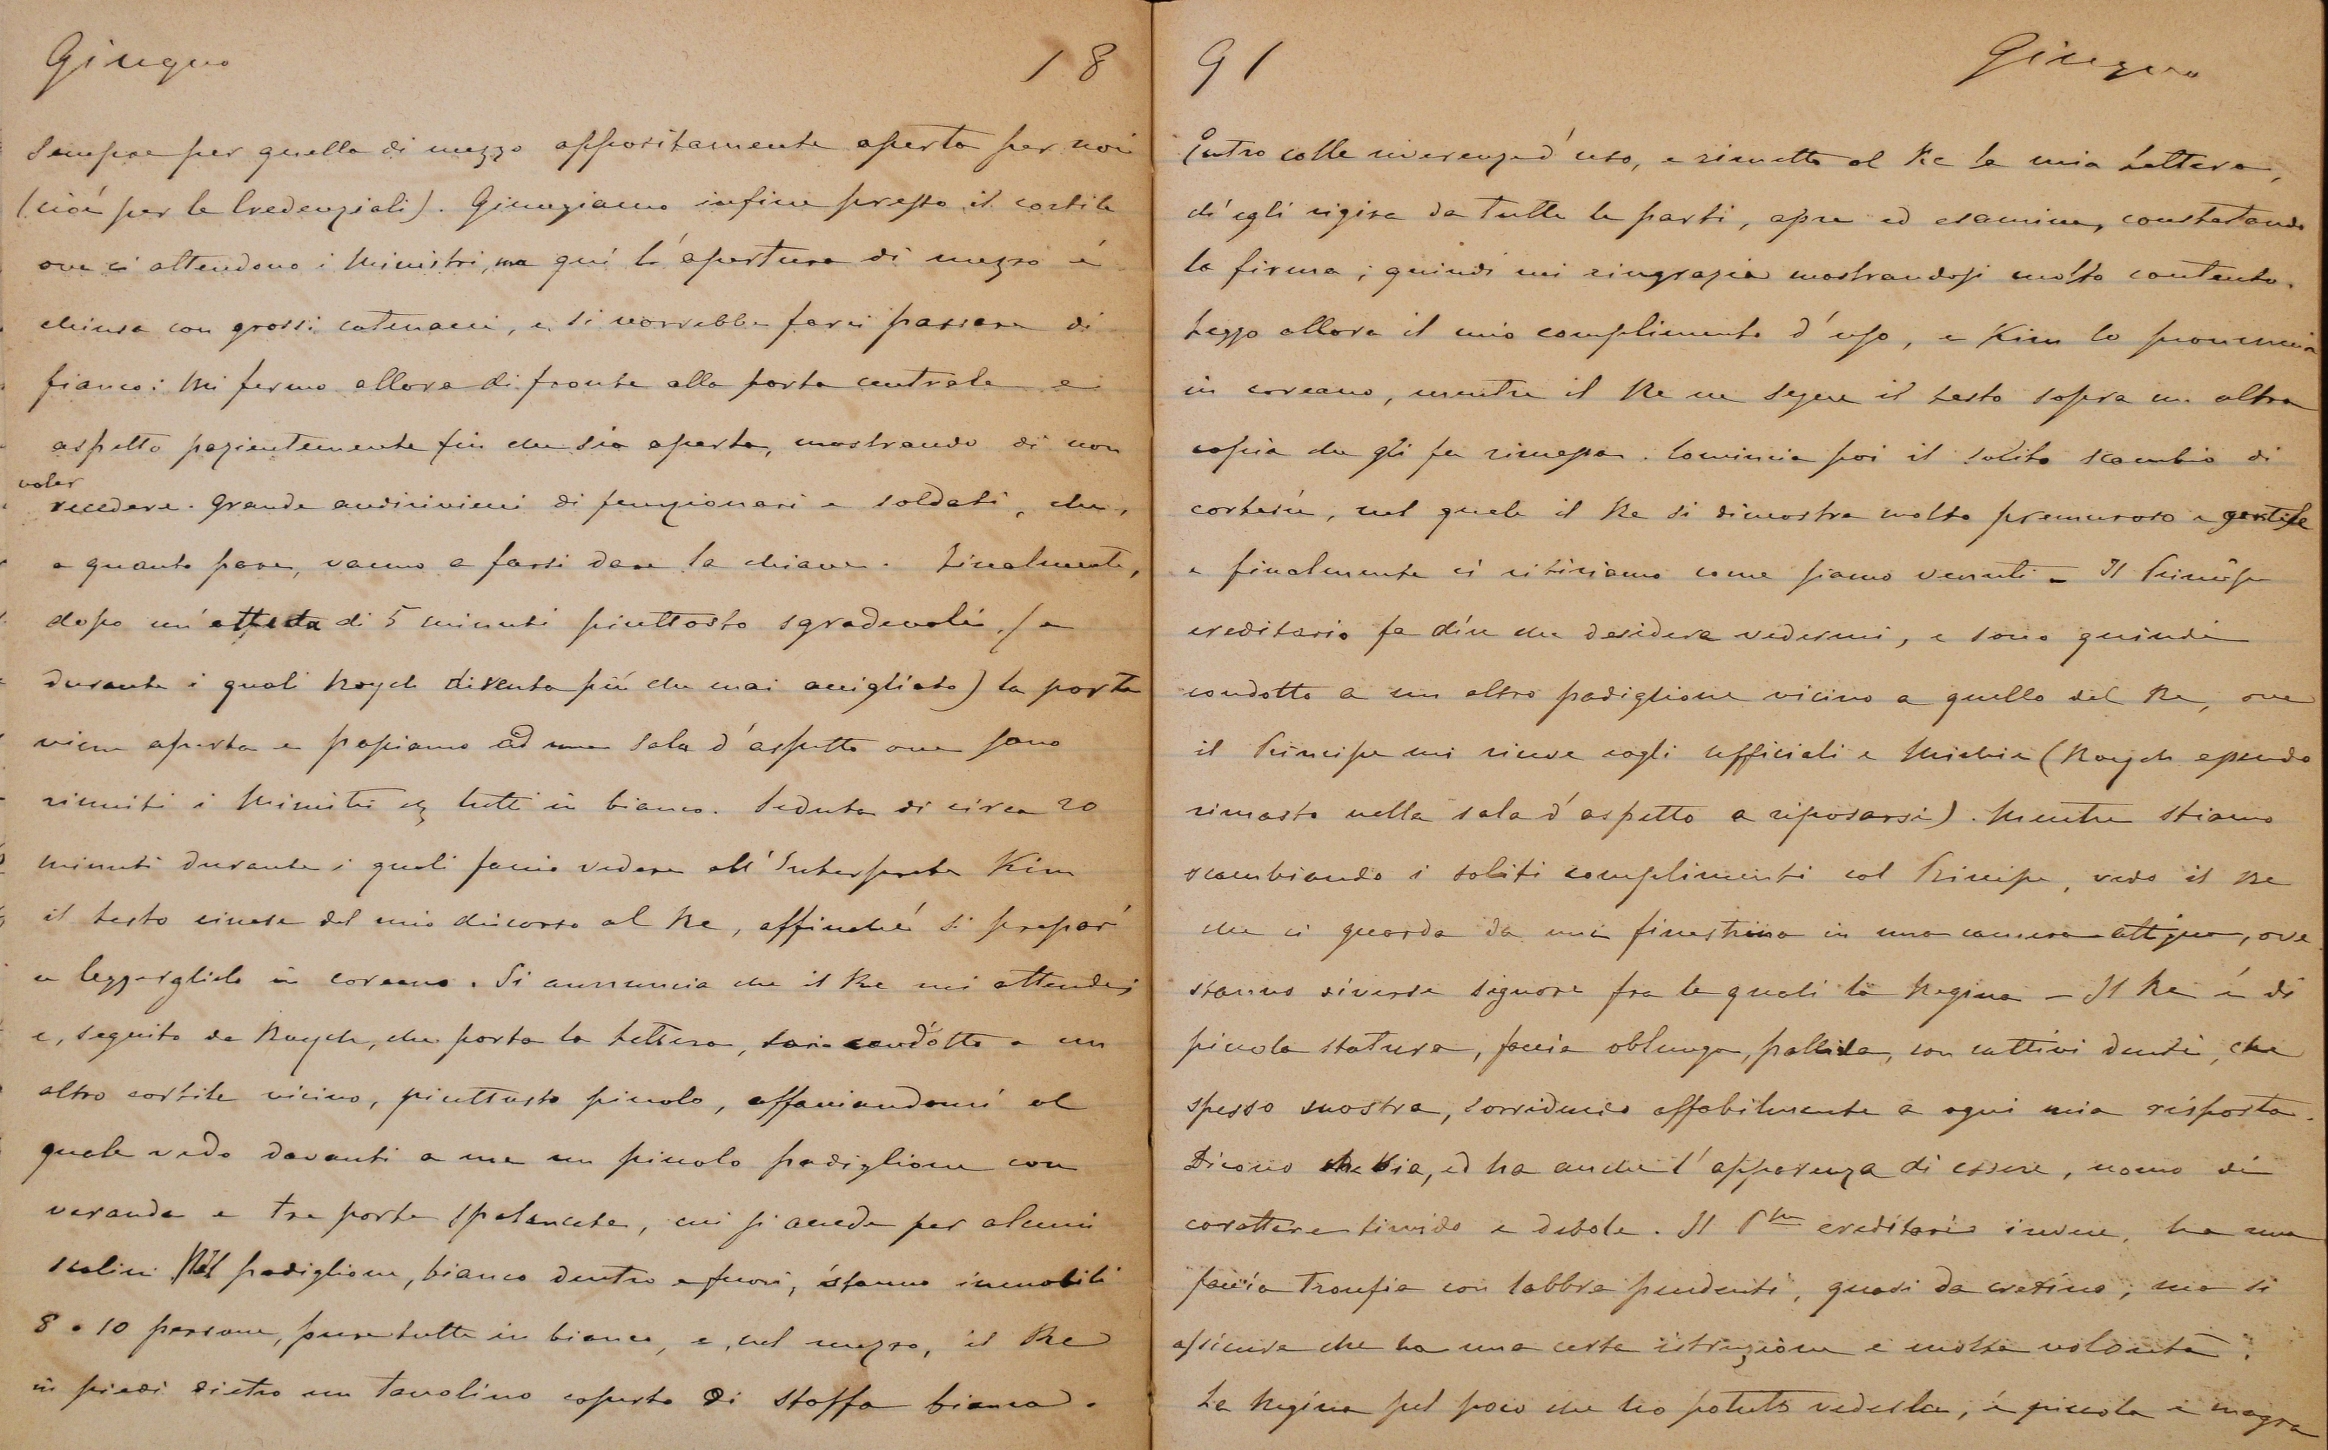 Giugno 18
sempre per quella di mezzo appositamente aperta per noi
(cioè per le Credenziali). Giungiamo infine presso il cortile
ove ci attendono i Ministri, ma quì l'apertura di mezzo è
chiusa con grossi catenacci, e si vorrebbe farci passare di
fianco: Mi fermo allora di fronte alla porta centrale e
aspetto pazientemente fin che sia aperta, mostrando di non
voler
recedere. Grande andirivieni di funzionari e soldati, che,
a quanto pare, vanno a farsi dare la chiave. Finalmente,
dopo un'attesa di 5 minuti piuttosto sgradevoli, (e
durante i quali Noych diventa più che mai accigliato) la porta
viene aperta e passiamo ad una sala d'aspetto ove sono
riuniti i Ministri eg tutti in bianco. Seduta di circa 20
minuti durante i quali faccio vedere all'Interprete Kim
il testo cinese del mio discorso al Re, affinché si prepari
a leggerglielo in coreano. Si annuncia che il Re mi attende;
e, seguito da Noych, che porta la lettera, sono condotto a un
altro cortile vicino, piuttosto piccolo, affacciandomi al
quale vedo davanti a me un piccolo padiglione con
veranda e tre porte spalancate, cui si accede per alcuni
scalini Nel padiglione, bianco dentro e fuori, stanno immobili
8 o 10 persone, pure tutte in bianco, e, nel mezzo, il Re
in piedi dietro un tavolino coperto di stoffa bianca.
91 Giugno
Entro colle riverenze d'uso, e rimetto al Re la mia Lettera,
ch'egli rigira da tutte le parti, apre ed esamina, constatando
la firma; quindi mi ringrazia mostrandosi molto contento.
Leggo allora il mio complimento d'uso, e Kim lo pronuncia
in coreano, mentre il Re ne segue il testo sopra un altra
copia che gli fu rimessa. Comincia poi il solito scambio di
cortesie, nel quale il Re si dimostra molto premuroso e gentile
e finalmente ci ritiriamo come siamo venuti – Il Principe
ereditario fa dire che desidera vedermi, e sono quindi
condotto a un altro padiglione vicino a quello del Re, ove
il Principe mi riceve cogli ufficiali e Michie (Noych essendo
rimasto nella sala d'aspetto a riposarsi). Mentre stiamo
scambiando i soliti complimenti col Principe, vedo il Re
che ci guarda da una finestrina in una camera attigua, ove
stanno diverse signore fra le quali la Regina – Il Re è di
piccola statura, faccia oblunga, pallida, con cattivi denti, che
spesso mostra, sorridendo affabilmente a ogni mia risposta.
Dicono che sia, ed ha anche l'apparenza di essere, uomo di
carattere timido e debole. Il Ppe ereditario invece, ha una
faccia tronfia con labbra pendenti, quasi da cretino; ma si
assicura che ha una certa istruzione e molta volontà.
La Regina pel poco che ho potuto vederla, è piccola e magra